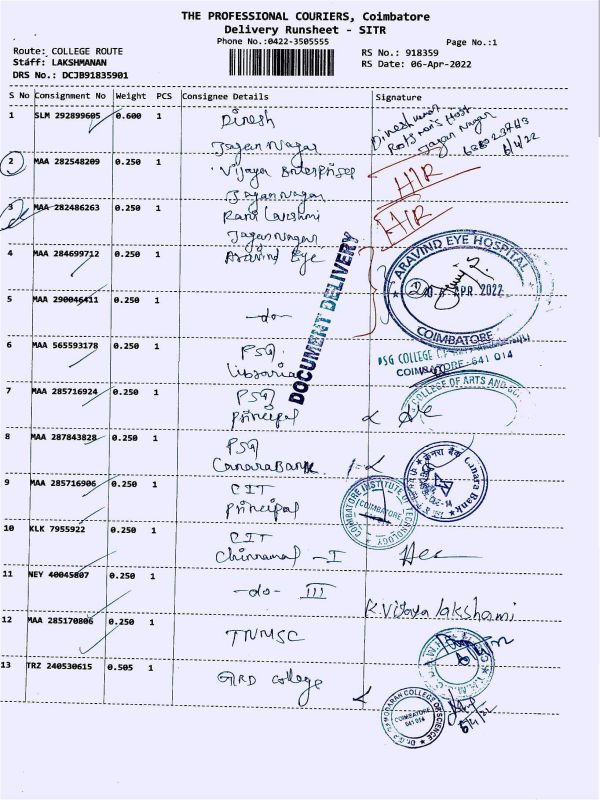 THE PROFESSIONAL COURIERS, Coimbatore
Delivery Runsheet - SITR
Phone No.:0422-3505555
Page No.:1
Route: COLLEGE ROUTE
RS No.: 918359
Staff: LAKSHMANAN
RS Date: 06-Apr-2022
DRS No.: DCJB91835901
S No Consignment No Weight PCS Consignee Details Signature
1 SLM 292899605 0.600 1 Dinesh
Jagan Nagar
Jagan Nagar
6/4/22
2 MAA 282548209 0.250 1 Vijaya Enterprises
Jagan Nagar
3 MAA 282486263 0.250 1 Rani Lakshmi
Jagan Nagar
4 MAA 284699712 0.250 1 Aravind Eye
ARAVIND EYE HOSPITAL
APR 2022
COIMBATORE
DOCUMENT DELIVERY
5 MAA 290046411 0.250 1 -do-
6 MAA 565593178 0.250 1 PSG
Librarian
PSG COLLEGE
COIMBATORE-641 014
7 MAA 285716924 0.250 1 PSG
Principal
COLLEGE OF ARTS AND
8 MAA 287843828 0.250 1 PSG
Canara Bank
केनरा बैंक Canara Bank
9 MAA 285716906 0.250 1 CIT
Principal
COIMBATORE INSTITUTE OF TECHNOLOGY
COIMBATORE
10 KLK 7955922 0.250 1 CIT
Chinnamal - I
11 NEY 40045807 0.250 1 -do- III
R. Vijaya lakshami
12 MAA 285170806 0.250 1 TNMSC
13 TRZ 240530615 0.505 1 GRD College
COLLEGE OF SCIENCE
COIMBATORE
641 014
6/4/22